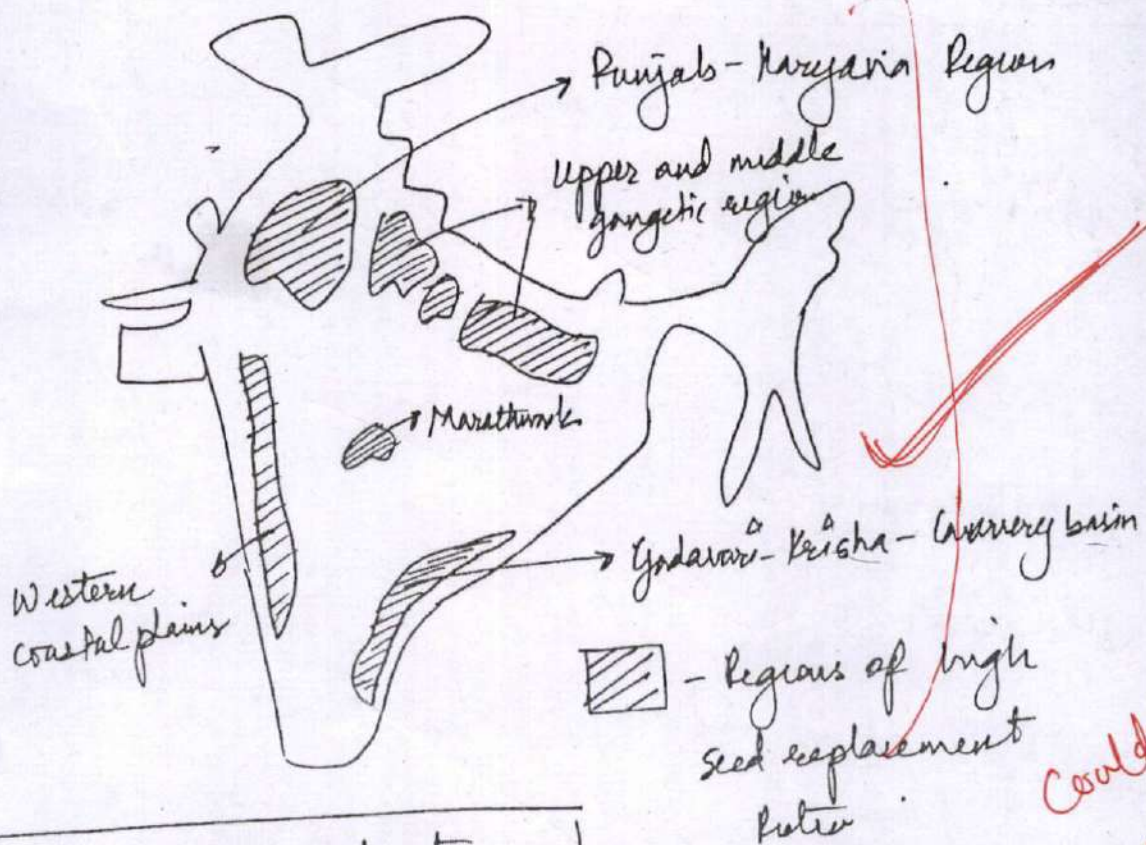 Punjab - Haryana Region
Upper and middle
gangetic region
Marathwada
Godavari - Krisha - Cauvery basin
Western
coastal plains
- Regions of high
seed replacement
Ratio
Could